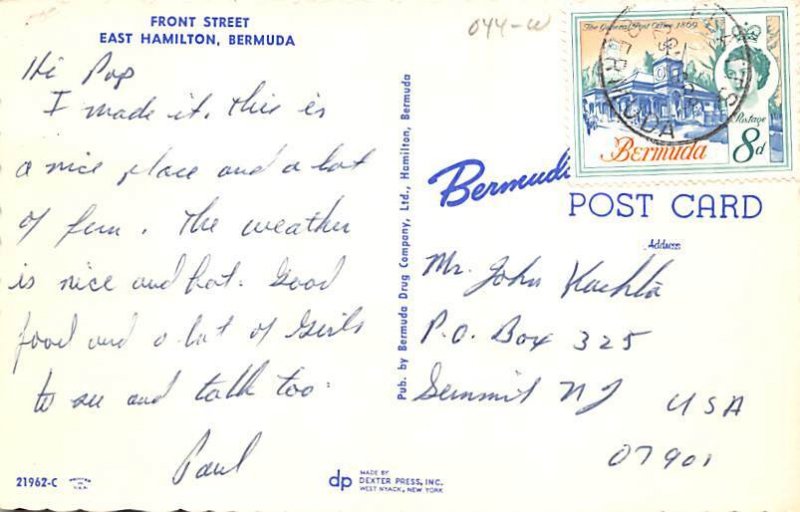 FRONT STREET
EAST HAMILTON, BERMUDA
Hi Pop
I made it. This is
a nice place and a lot
of fun. The weather
is nice and hot. Good
food and a lot of Girls
to see and talk too.
Paul
21962-C
Pub. by Bermuda Drug Company, Ltd., Hamilton, Bermuda
dp
MADE BY
DEXTER PRESS, INC.
WEST NYACK, NEW YORK
044-W
The General Post Office 1869
BERMUDA
Postage
Bermuda
8d
POST CARD
Address
Mr. John
P.O. Box 325
Summit NJ USA
07901